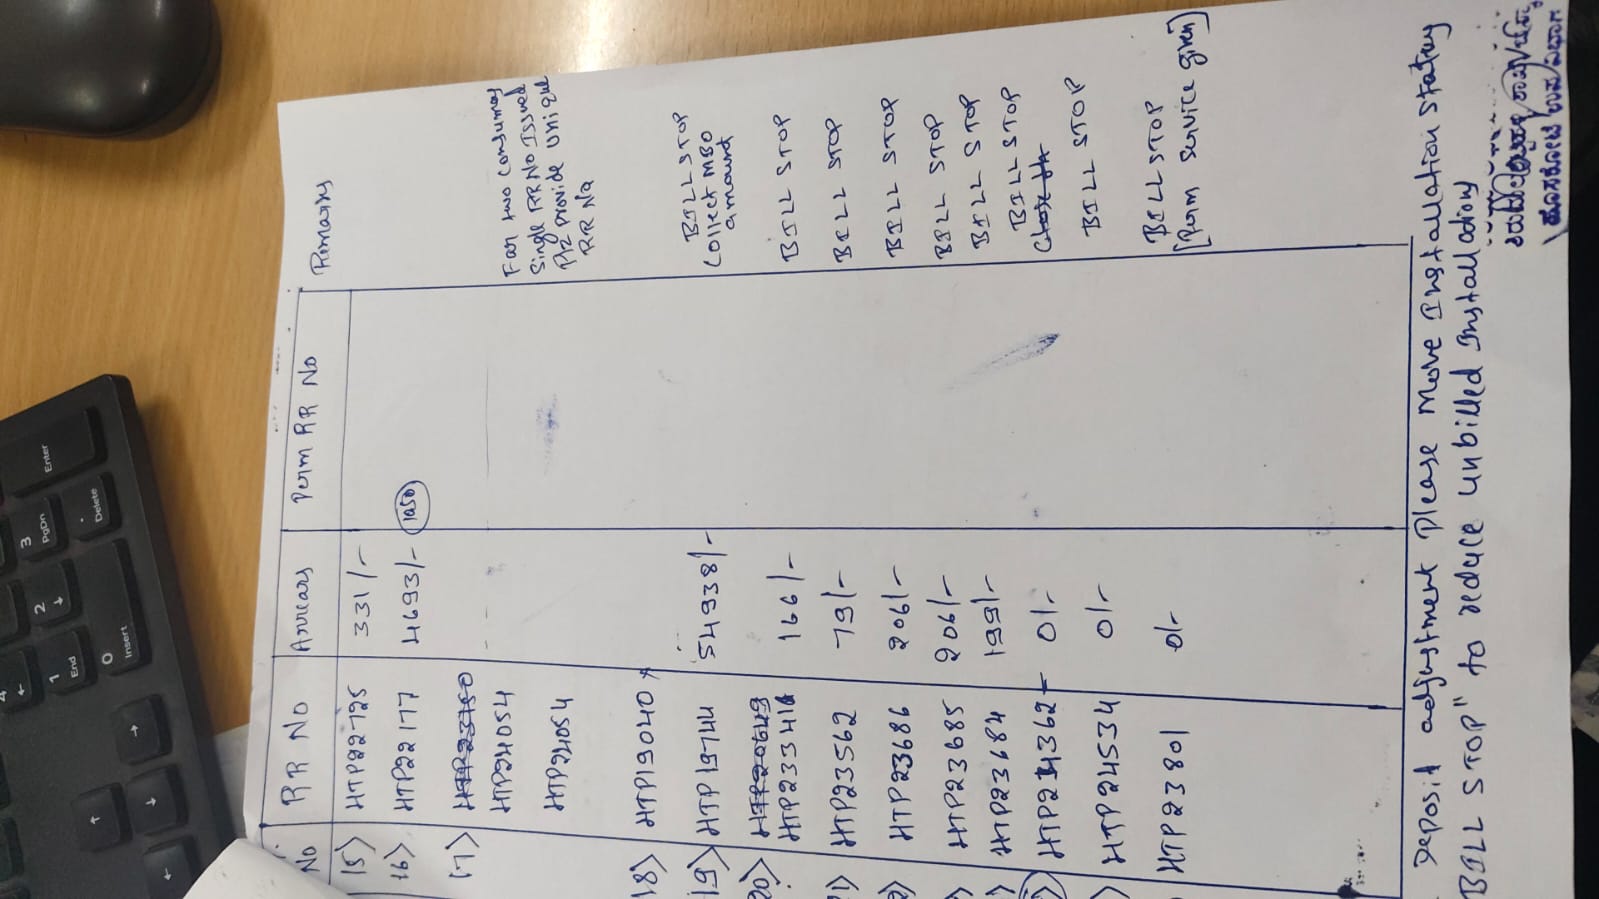 No RR No Arrears Perm RR No Remarks
15) HTP22725 331/-
16) HTP22177 4693/- 1250
17) HTP23150
HTP24054 For two consumers
Single RR No Issued
Plz provide Unique
RR No
HTP24054
18) HTP19040
19) HTP19744 54938/- BILL STOP
Collect MBO
amount
20) HTP22649
HTP23341 166/- BILL STOP
HTP23562 79/- BILL STOP
HTP23686 206/- BILL STOP
HTP23685 206/- BILL STOP
HTP23684 199/- BILL STOP
HTP24362 0/- BILL STOP
HTP24534 0/- BILL STOP
HTP23801 0/- BILL STOP
[Perm service given]
Deposit adjustment Please Move Installation status
BILL STOP" to reduce unbilled Installations
Enter
3
PgDn
Delete
2
1
End
0
Insert
4